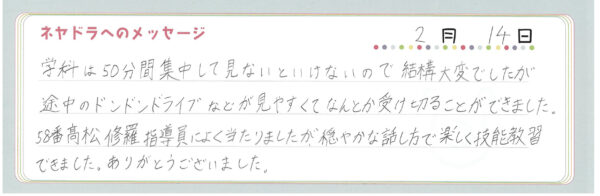 ネヤドラへのメッセージ
2月 14日
学科は50分間集中して見ないといけないので結構大変でしたが
途中のドンドンドライブなどが見やすくてなんとか受け切ることができました。
58番髙松修羅指導員によく当たりましたが、穏やかな話し方で楽しく技能教習
できました。ありがとうございました。